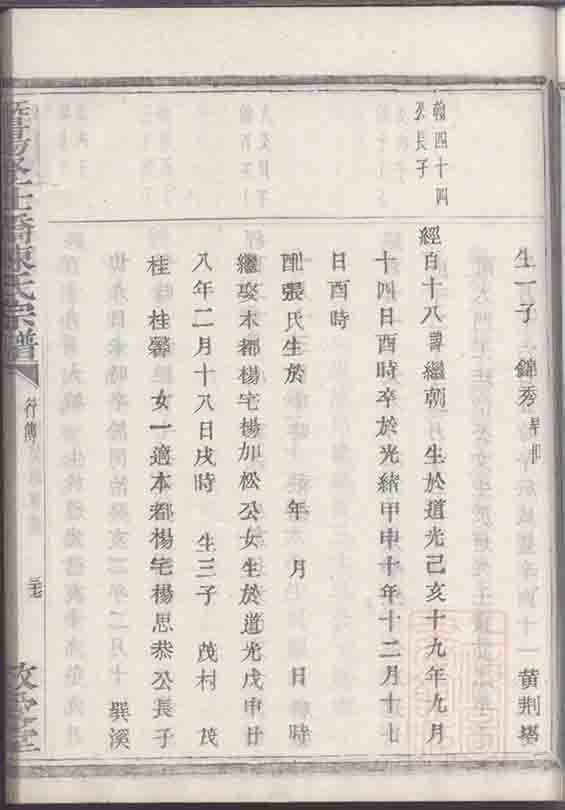 生一子 錦秀 黃荆塔
翰四十四
公長子
經百十八諱繼朝 生於道光己亥十九年九月
十四日酉時卒於光緒甲申十年十二月十七
日酉時
配張氏生於 年 月 日 時
繼娶本都楊宅楊加松公女生於道光戊申廿
八年二月十八日戌時 生三子 茂村 茂
桂 桂馨 女一適本都楊宅楊思恭公長子
巽溪
橋陳氏宗譜
行傳